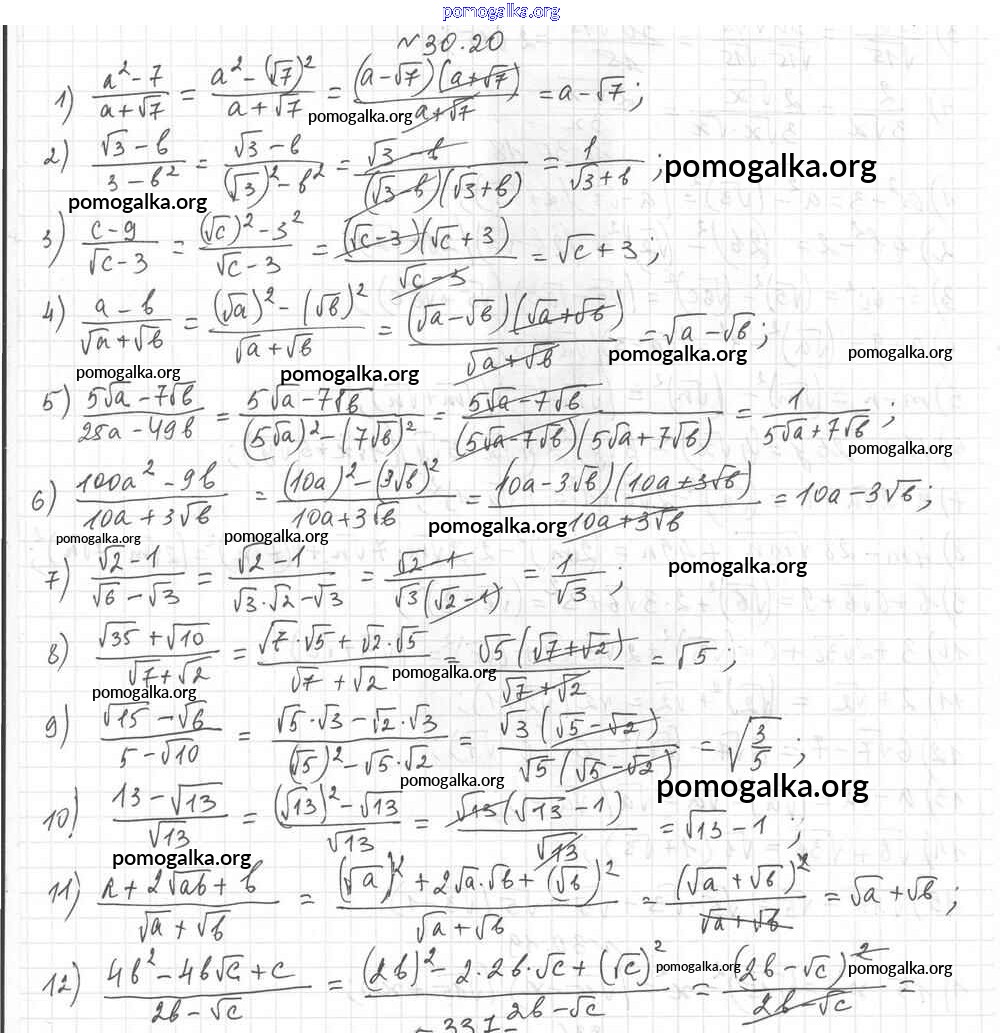 pomogalka.org
№30.20
1) (a² - 7)/(a + √7) = (a² - (√7)²)/(a + √7) = ((a - √7)(a + √7))/(a + √7) = a - √7;
pomogalka.org
2) (√3 - b)/(3 - b²) = (√3 - b)/((√3)² - b²) = (√3 - b)/((√3 - b)(√3 + b)) = 1/(√3 + b);
pomogalka.org
pomogalka.org
3) (c - 9)/(√c - 3) = ((√c)² - 3²)/(√c - 3) = ((√c - 3)(√c + 3))/(√c - 3) = √c + 3;
4) (a - b)/(√a + √b) = ((√a)² - (√b)²)/(√a + √b) = ((√a - √b)(√a + √b))/(√a + √b) = √a - √b;
pomogalka.org pomogalka.org
pomogalka.org pomogalka.org
5) (5√a - 7√b)/(25a - 49b) = (5√a - 7√b)/((5√a)² - (7√b)²) = (5√a - 7√b)/((5√a - 7√b)(5√a + 7√b)) = 1/(5√a + 7√b);
pomogalka.org
6) (100a² - 9b)/(10a + 3√b) = ((10a)² - (3√b)²)/(10a + 3√b) = ((10a - 3√b)(10a + 3√b))/(10a + 3√b) = 10a - 3√b;
pomogalka.org pomogalka.org pomogalka.org
7) (√2 - 1)/(√6 - √3) = (√2 - 1)/(√3·√2 - √3) = (√2 - 1)/(√3(√2 - 1)) = 1/√3;
pomogalka.org
8) (√35 + √10)/(√7 + √2) = (√7·√5 + √2·√5)/(√7 + √2) = (√5(√7 + √2))/(√7 + √2) = √5;
pomogalka.org pomogalka.org
9) (√15 - √6)/(5 - √10) = (√5·√3 - √2·√3)/((√5)² - √5·√2) = (√3(√5 - √2))/(√5(√5 - √2)) = √(3/5);
pomogalka.org pomogalka.org
10) (13 - √13)/√13 = ((√13)² - √13)/√13 = (√13(√13 - 1))/√13 = √13 - 1;
pomogalka.org
11) (a + 2√ab + b)/(√a + √b) = ((√a)² + 2√a·√b + (√b)²)/(√a + √b) = (√a + √b)²/(√a + √b) = √a + √b;
12) (4b² - 4b√c + c)/(2b - √c) = ((2b)² - 2·2b·√c + (√c)²)/(2b - √c) = (2b - √c)²/(2b - √c) =
pomogalka.org pomogalka.org
- 331 -